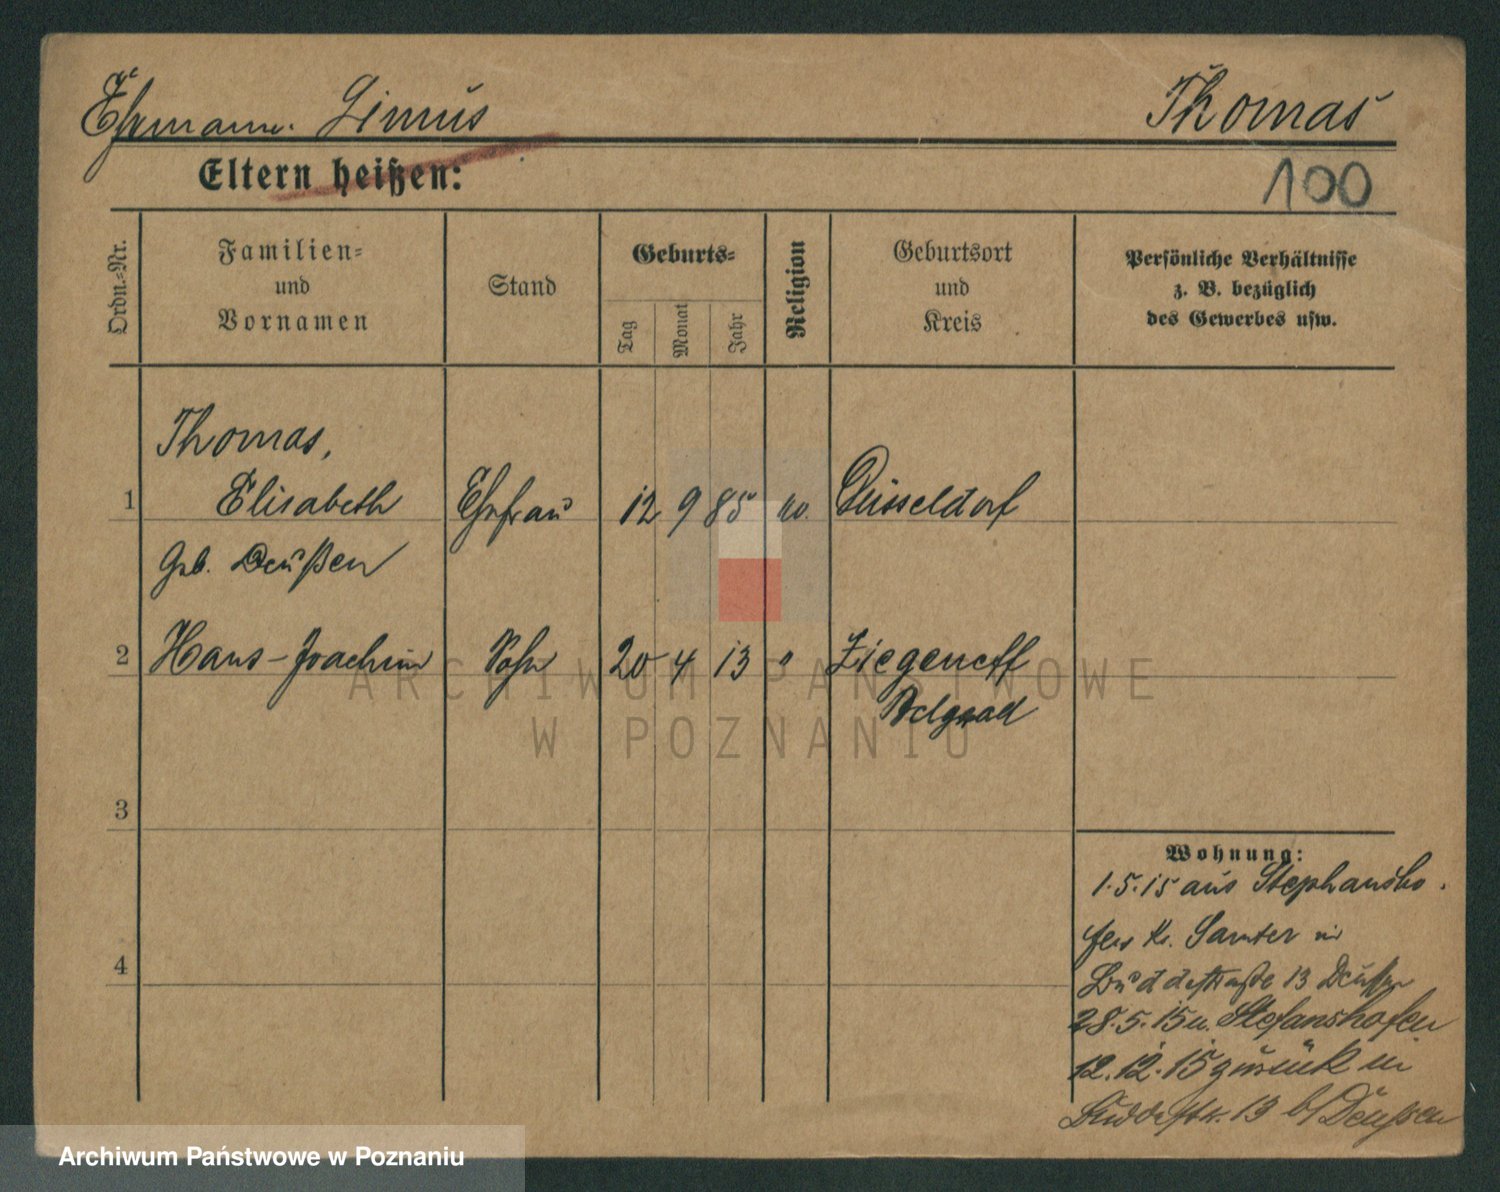 Ehemann: Linus Thomas
Eltern heißen:
100
Ordn.=Nr.
Familien=
und
Vornamen
Stand
Geburts=
Tag
Monat
Jahr
Religion
Geburtsort
und
Kreis
Persönliche Verhältnisse
z. B. bezüglich
des Gewerbes usw.
Thomas,
1 Elisabeth Ehefrau 12 9 85 Düsseldorf
geb. Deußen
2 Hans-Joachim Sohn 20 4 13 " Ziegeneff
Belgrad
3
4
Wohnung:
1.5.15 aus Stephansho
fen Kr. Samter in
Buddestraße 13 Deußen
28.5.15 n. Stefanshofen
12.12.15 zurück in
Buddestr. 13 b/ Deußen
ARCHIWUM PAŃSTWOWE
W POZNANIU
Archiwum Państwowe w Poznaniu